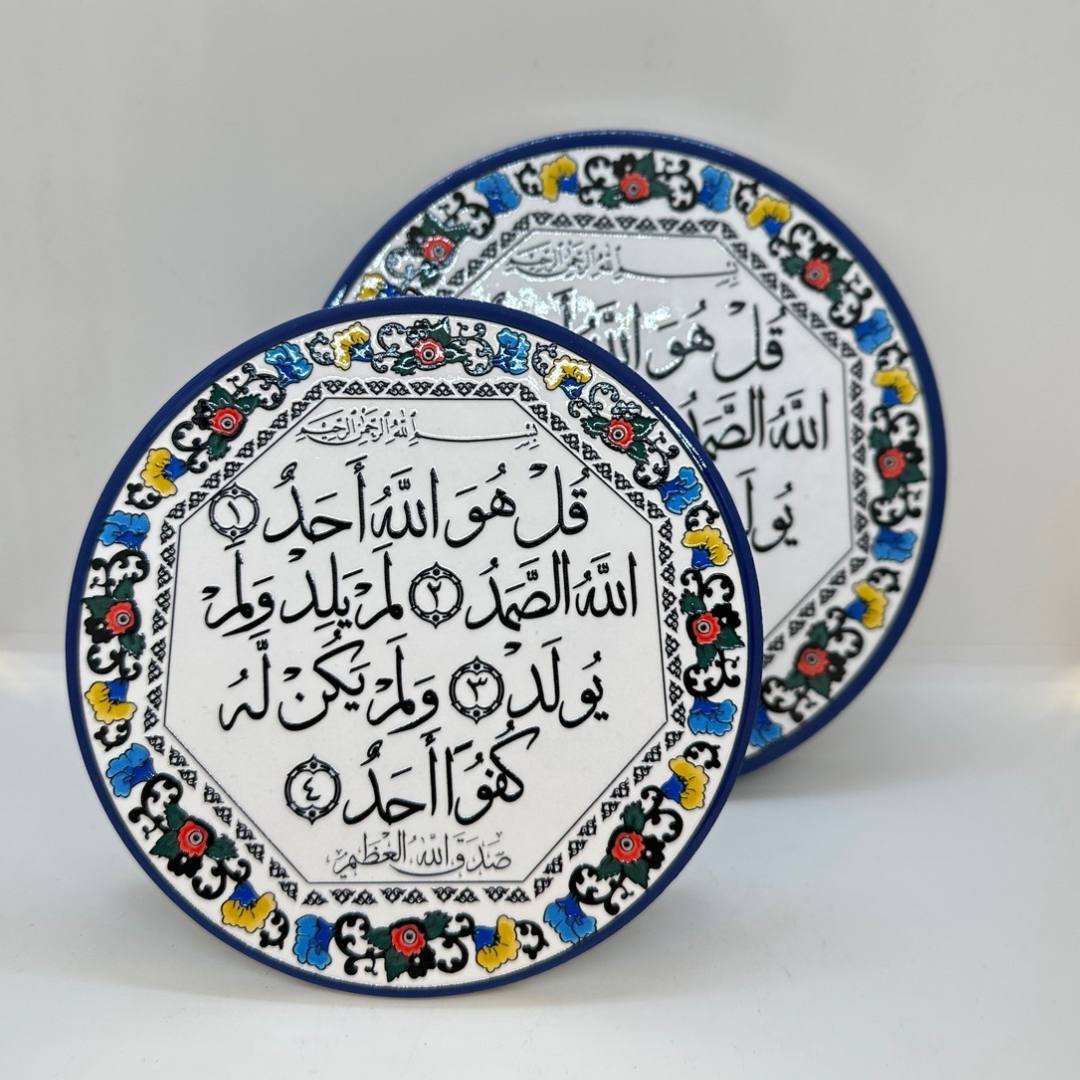 بِسْمِ اللهِ الرَّحْمٰنِ الرَّحِيمِ
قُلْ هُوَ اللَّهُ أَحَدٌ ١
اللَّهُ الصَّمَدُ ٢ لَمْ يَلِدْ وَلَمْ
يُولَدْ ٣ وَلَمْ يَكُنْ لَّهُ
كُفُوًا أَحَدٌ ٤
صَدَقَ اللهُ العَظِيم
بسم الله الرحمن الرحيم
قُلْ هُوَ اللَّهُ
اللَّهُ الصَّمَدُ